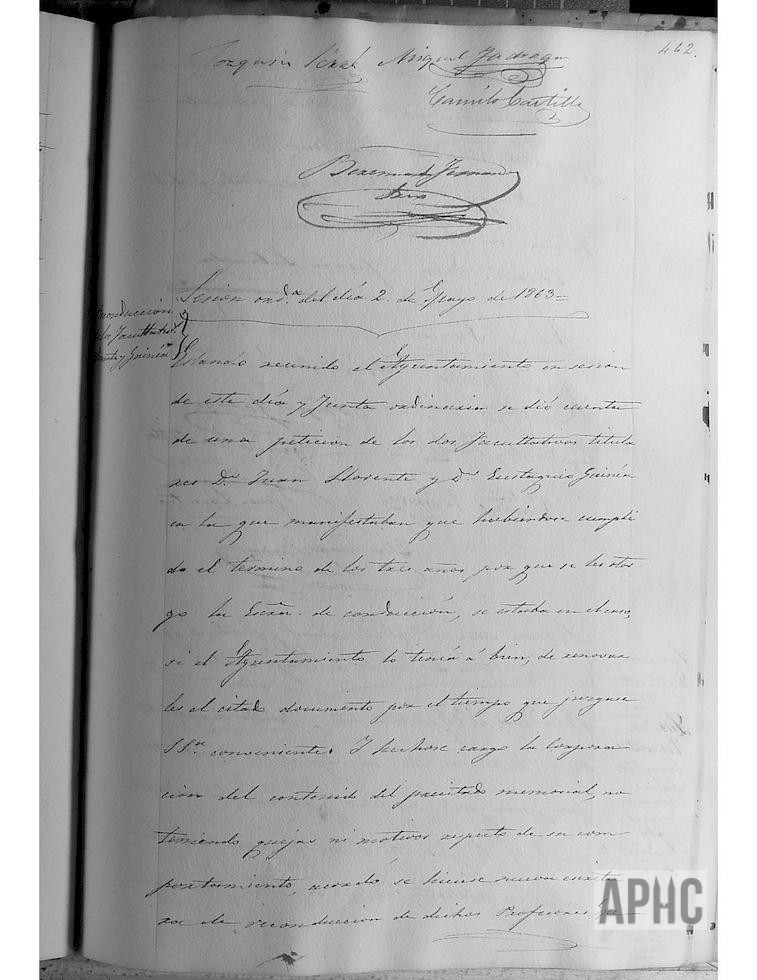 462.
Joaquin Miguel Jadraque
Camilo Castillo
Bernardo Fernandez
Sesion ord.ª del día 2. de Mayo de 1863=
conducción
Facultativ.
Llorente y Guinéa
Estando reunido el Ayuntamiento en sesion
de este día y Junta ordinaria se dió cuenta
de una peticion de los dos Facultativos titula
res D.n Juan Llorente y D.n Eustaquio Guinéa
en la que manifestaban que habiéndose cumpli
do el termino de los tres años por que se les otor
go la Escra. de conducción, se estaba en el caso,
si el Ayuntamiento lo tenía á bien, de renovar
les el citado documento por el tiempo que juzgase
SS.ª conveniente. Y hechose cargo la Corpora
cion del contenido del precitado memorial, no
teniendo quejas ni motivos respecto de su com
portamiento, acordó se hiciese nueva escritu
ra de reconduccion de dichos Profesores
APHC